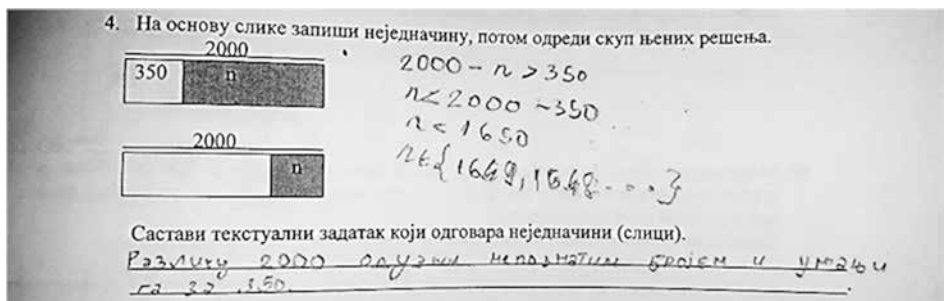 4. На основу слике запиши неједначину, потом одреди скуп њених решења.
2000
350 n
2000 - n > 350
n < 2000 - 350
n < 1650
2000
n
n ∈ {1649, 1648 ... }
Састави текстуални задатак који одговара неједначини (слици).
Разлику 2000 одузми непознатим бројем и умањи
га за 350.